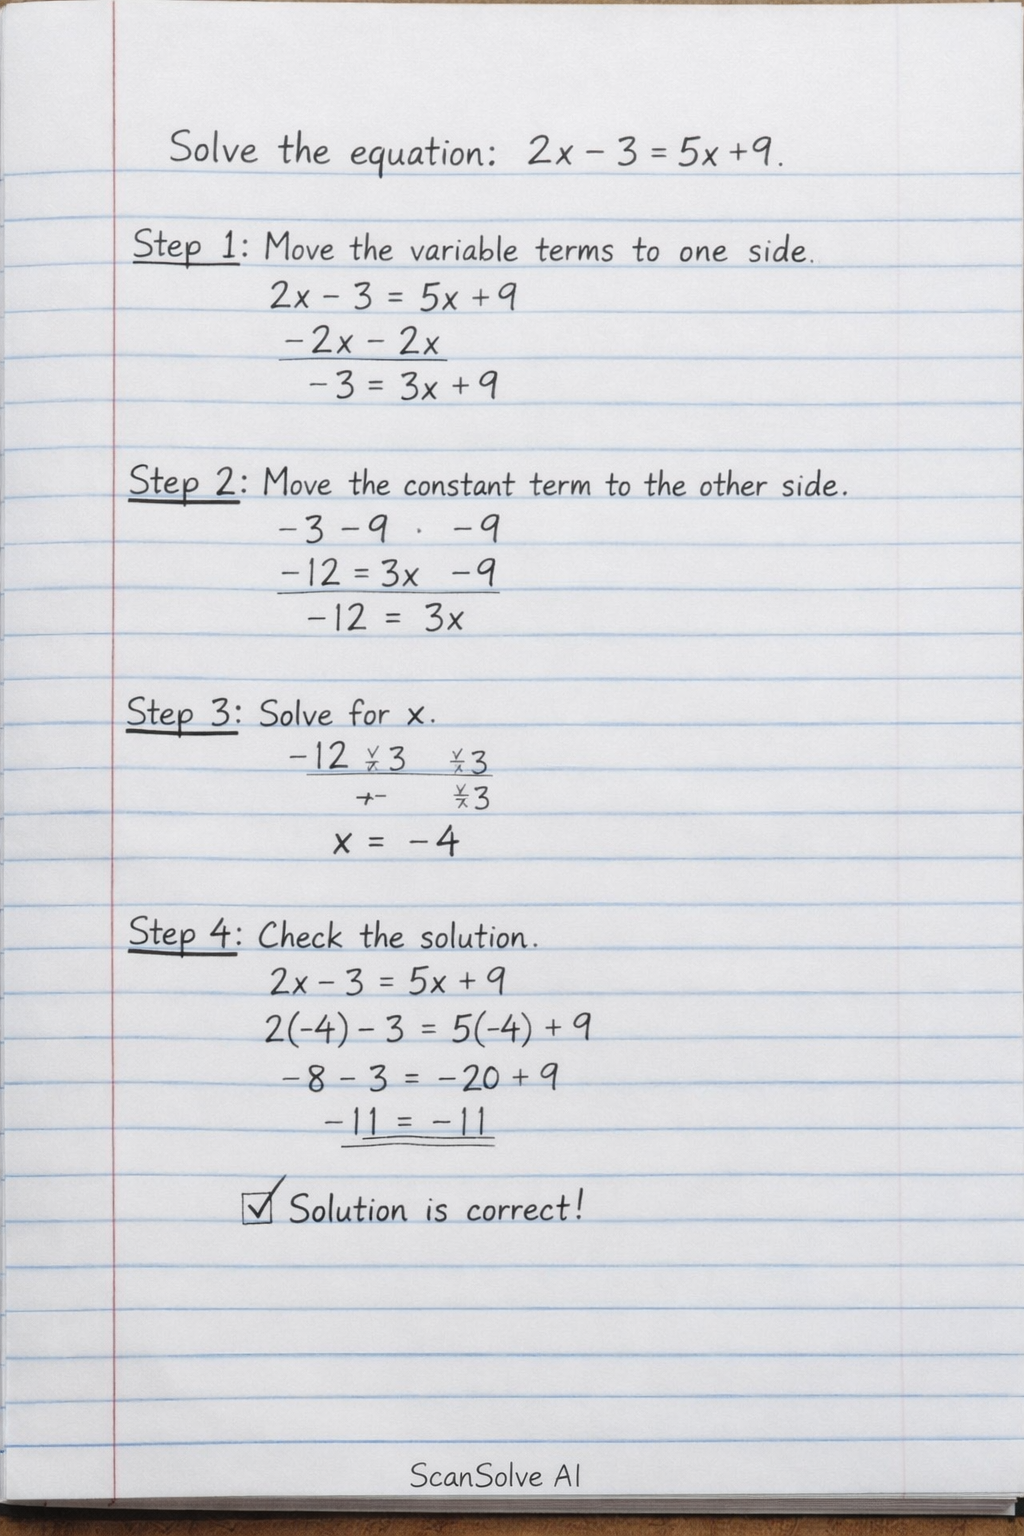 Solve the equation: 2x − 3 = 5x + 9.
Step 1: Move the variable terms to one side.
2x − 3 = 5x + 9
−2x − 2x
−3 = 3x + 9
Step 2: Move the constant term to the other side.
−3 − 9 · −9
−12 = 3x −9
−12 = 3x
Step 3: Solve for x.
−12 3 3
+− 3
x = −4
Step 4: Check the solution.
2x − 3 = 5x + 9
2(−4) − 3 = 5(−4) + 9
−8 − 3 = −20 + 9
−11 = −11
☑ Solution is correct!
ScanSolve AI